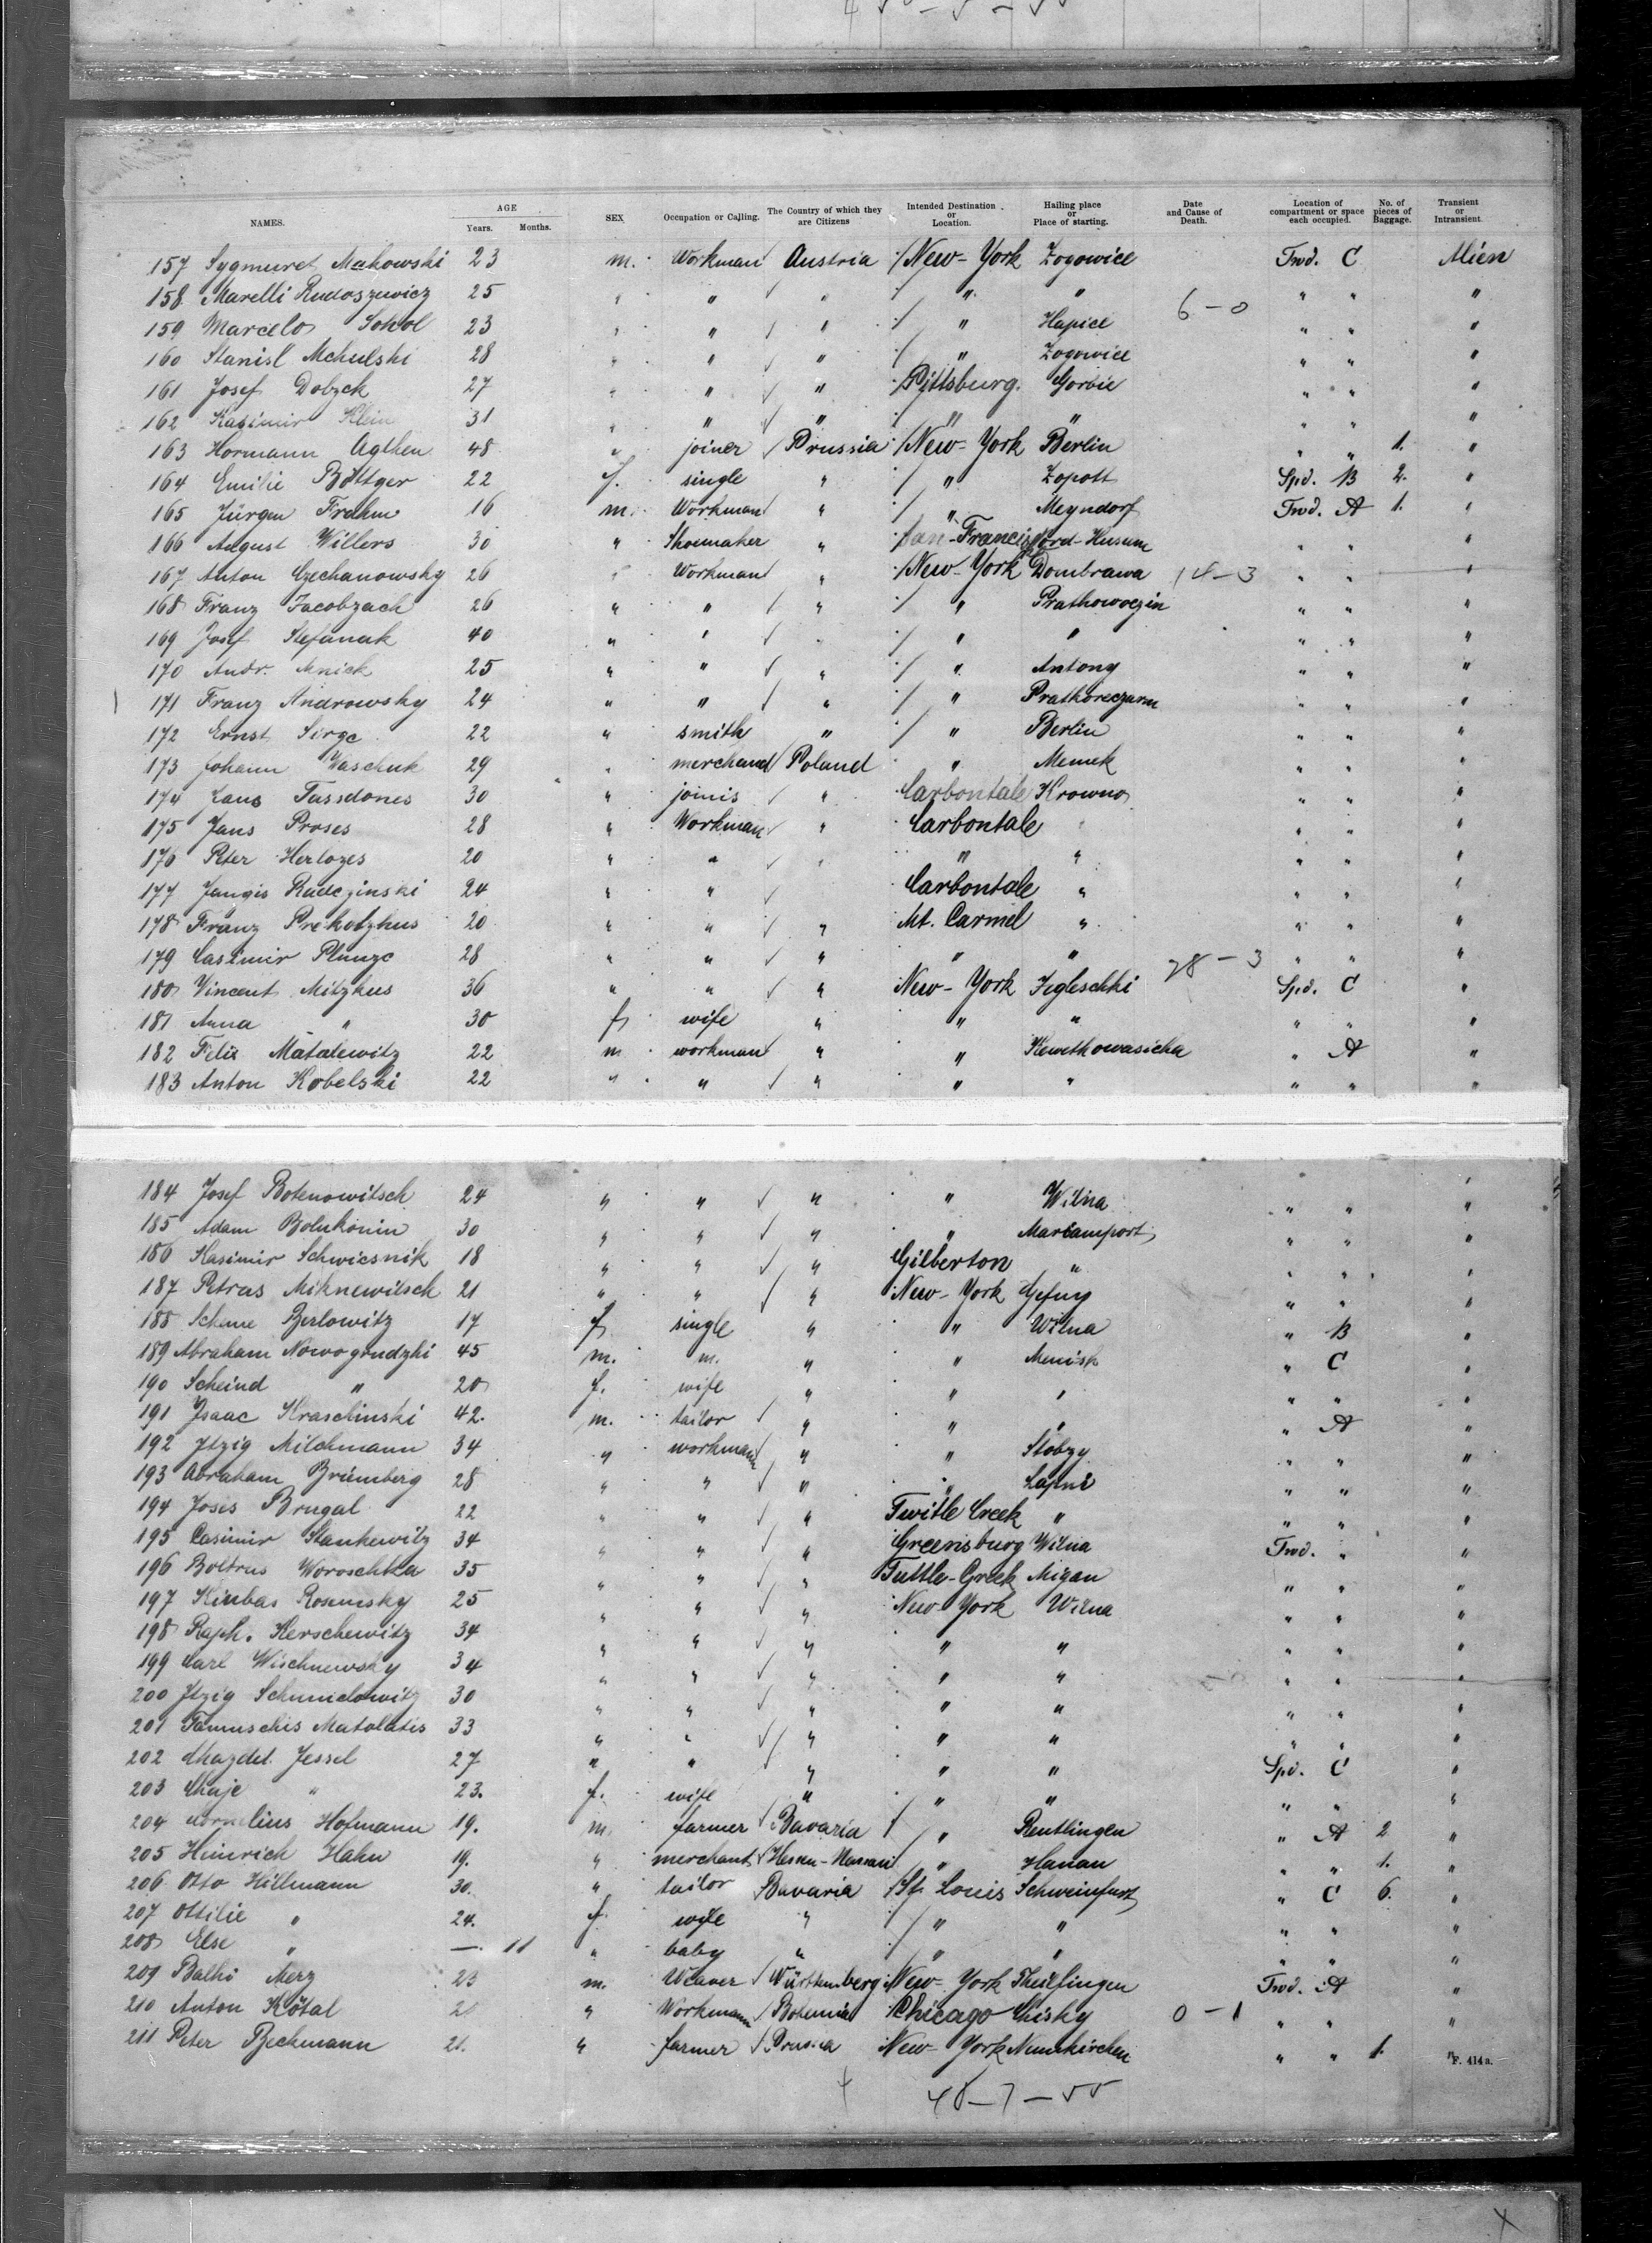 NAMES. AGE Years. Months. SEX Occupation or Calling. The Country of which they are Citizens Intended Destination or Location. Hailing place or Place of starting. Date and Cause of Death. Location of compartment or space each occupied. No. of pieces of Baggage. Transient or Intransient.
157 Sygmuret Makowski 23 m. Workman Austria New-York Zogowice Fwd. C Alien
158 Marelli Rudoszewicz 25 " " " " " 6-0 " " "
159 Marcelo Sokol 23 " " " " Hapice " " "
160 Stanisl Mchulski 28 " " " " Zogowice " " "
161 Josef Dobzck 27 " " " Pittsburg. Gorbie " " "
162 Kasimir Klein 31 " " " " " " " "
163 Hormann Agthen 48 " joiner Prussia New-York Berlin " " 1. "
164 Emilie Böttger 22 f. single " " Zopott Spd. B 2. "
165 Jürgen Frahm 16 m. Workman " " Meyndorf Fwd. A 1. "
166 August Willers 30 " Shoemaker " San-Francis Nord-Husum " " "
167 Anton Czechanowsky 26 " Workman " New-York Dombrawa 14-3 " " "
168 Franz Jacobzach 26 " " " " Prathowoczin " " "
169 Josef Stefanak 40 " " " " " " " "
170 Andr. Anick 25 " " " " Antony " " "
171 Franz Androwsky 24 " " " " Prathoreczarm " " "
172 Ernst Sirge 22 " smith " " Berlin " " "
173 Johann Waschuk 29 " merchand Poland " Memek " " "
174 Kans Tassdones 30 " joinis " Carbontale Krowno " " "
175 Jans Proses 28 " Workman " Carbontale " " " "
176 Peter Hertozes 20 " " " " " " " "
177 Jangis Radczinski 24 " " Carbontale " " " "
178 Franz Prekotzkus 20 " " " Mt. Carmel " " " "
179 Casimir Plunge 28 " " " " " 28-3 " " "
180 Vincent Mitzkus 36 " " " New-York Jegleschki Spd. C "
181 Anna " 30 f. wife " " " " " "
182 Felix Matalewitz 22 m workman " " Kewethowasicha " A "
183 Anton Kobelski 22 " " " " " " " "
184 Josef Botenowitsch 24 " " " " Wilna " " "
185 Adam Bolukonin 30 " " " " Mariamport " " "
186 Kasimir Schwicsnik 18 " " " Gilberton " " " "
187 Petras Miknewitsch 21 " " " New-York Gefny " " "
188 Scheme Berlowitz 17 f. single " " Wilna " B "
189 Abraham Nowogrudzki 45 m. m. " " Menisk " C "
190 Scheind " 20 f. wife " " " " " "
191 Isaac Kraschinski 42. m. tailor " " " " A "
192 Itzig Milchmann 34 " workmann " " Stobzy " " "
193 Abraham Brümberg 28 " " " " Lapni " " "
194 Josis Brugal 22 " " " Twitle Creek " " " "
195 Casimir Stankewitz 34 " " " Greensburg Wilna Fwd. " "
196 Boltrus Woroschka 35 " " " Tuttle-Greek Nigan " " "
197 Kinbas Rosemsky 25 " " " New York Wilna " " "
198 Raph. Herschewitz 34 " " " " " " " "
199 Carl Wischnewsky 34 " " " " " " " "
200 Itzig Schmuelowitz 30 " " " " " " " "
201 Tamuschis Matolatis 33 " " " " " " " "
202 Chazdel Jessel 27 " " " " " Spd. C "
203 Chaje " 23. f. wife " " " " " "
204 Cornelius Hofmann 19. m. farmer Bavaria " Reutlingen " A 2 "
205 Heinrich Hahn 19. " merchant Hessen-Nassau " Hanau " " 1. "
206 Otto Hillmann 30. " tailor Bavaria St. Louis Schweinfurt " C 6. "
207 Ottilie " 24. f. wife " " " " " "
208 Else " — 11 " baby " " " " " "
209 Balhi Merz 23 m. Weaver Württemberg New-York Theilfingen Fwd. A "
210 Anton Kötal 2 " Workmann Bohemia Chicago Chisky 0-1 " " "
211 Peter Beckmann 21. " farmer Prussia New-York Neunkirchen " " 1. "
F. 414a.
48-7-55